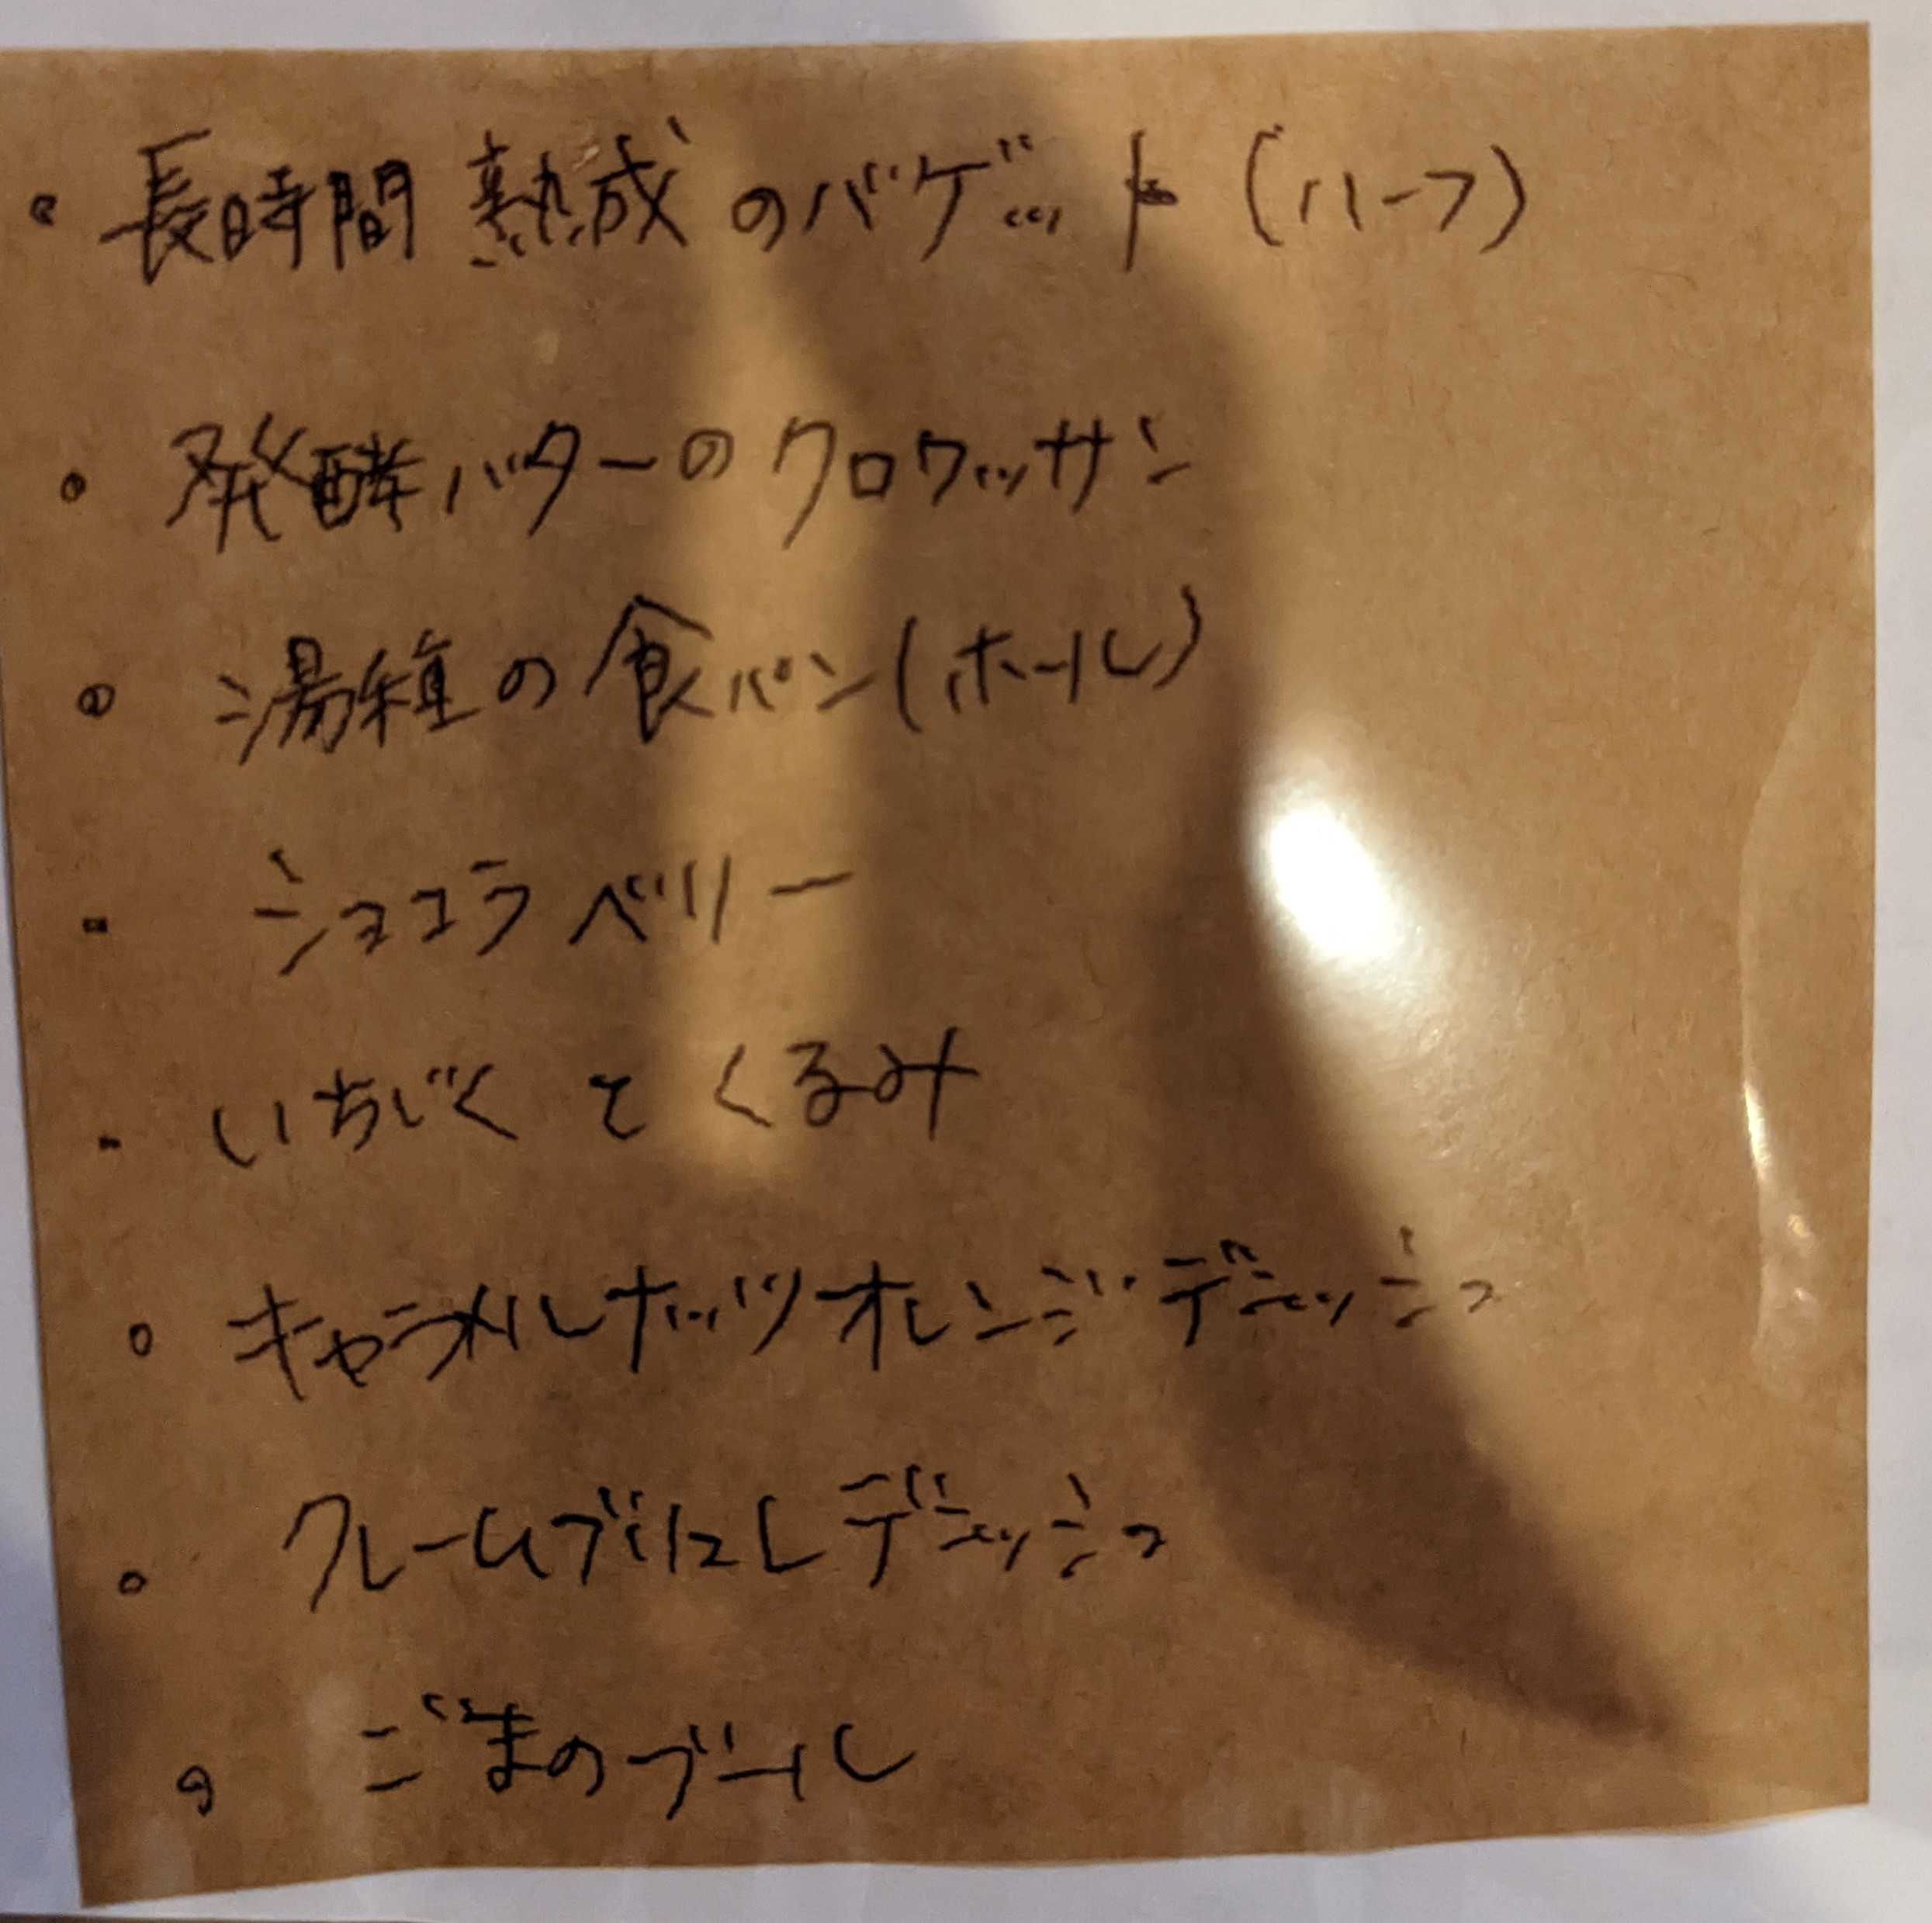 ・長時間熟成のバゲット(ハーフ)
・発酵バターのクロワッサン
・湯種の食パン(ホール)
・ショコラベリー
・いちじくとくるみ
・キャラメルナッツオレンジデニッシュ
・クレームブリュレデニッシュ
・ごまのブール